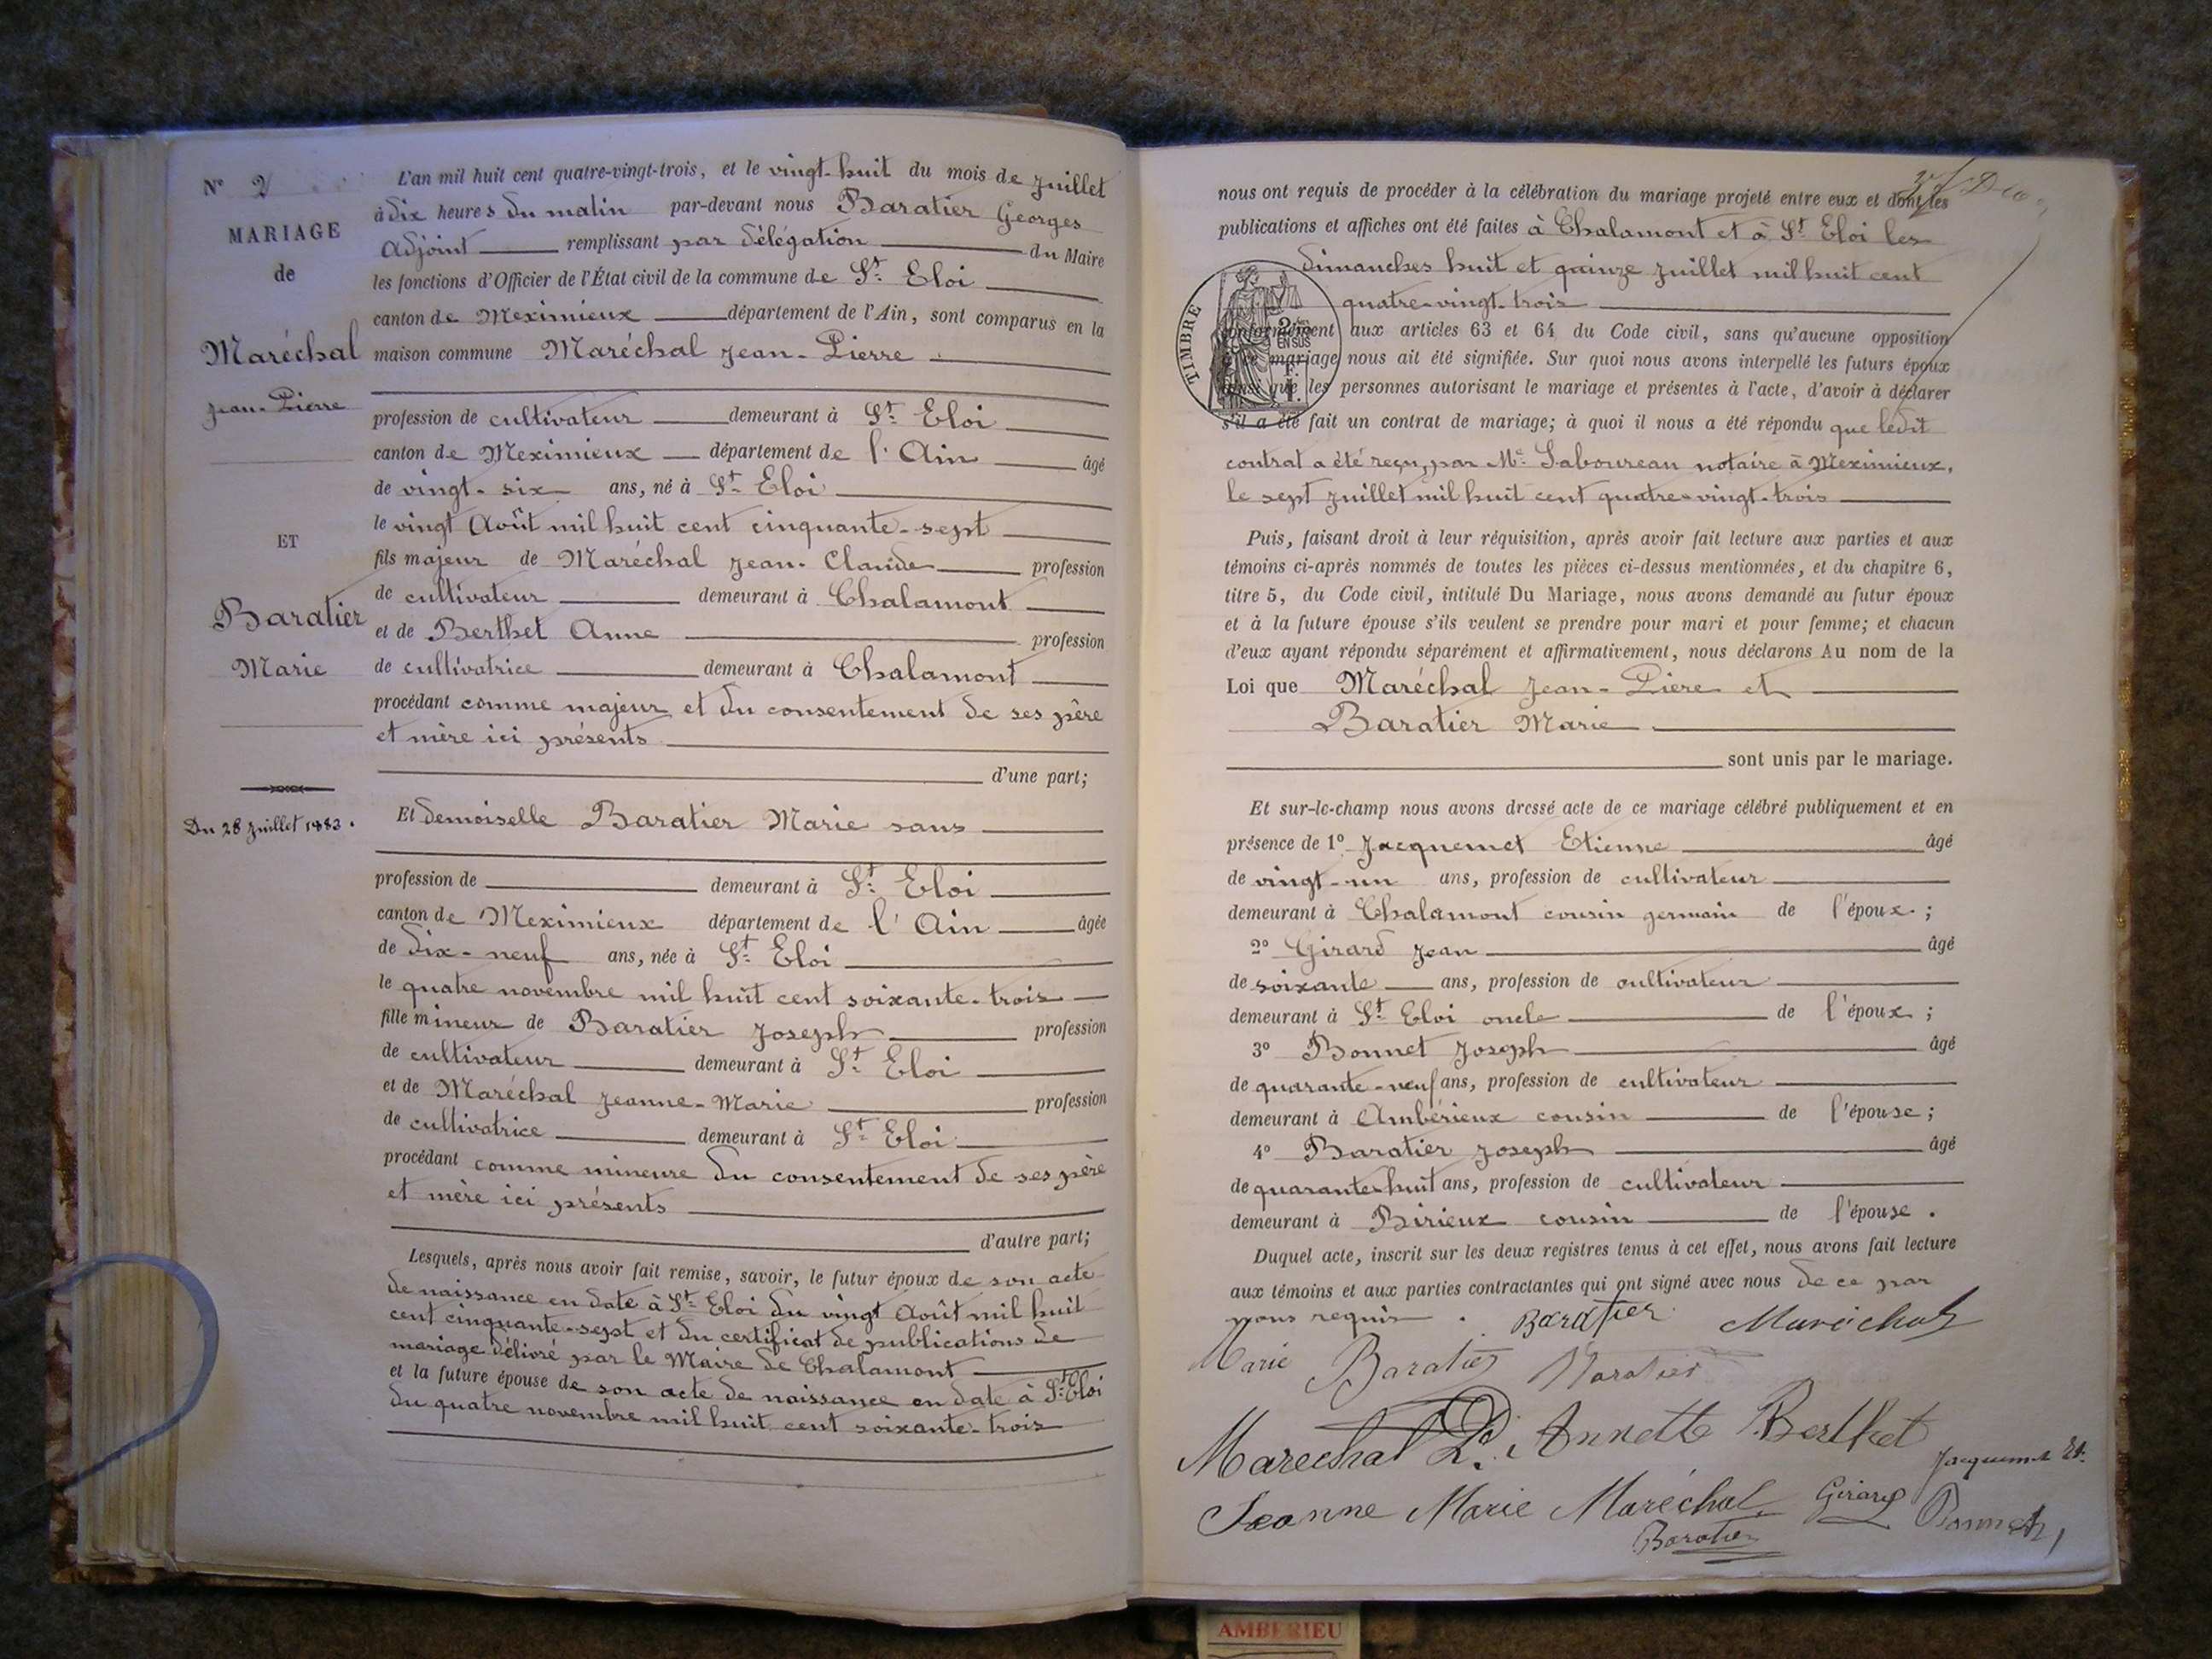 N° 2
MARIAGE
de
Maréchal
Jean-Pierre
ET
Baratier
Marie
Du 28 Juillet 1883.
L'an mil huit cent quatre-vingt-trois, et le vingt-huit du mois de Juillet
à dix heures du matin par-devant nous Baratier Georges
Adjoint remplissant par délégation du Maire
les fonctions d'Officier de l'État civil de la commune de St Eloi
canton de Meximieux département de l'Ain, sont comparus en la
maison commune Maréchal Jean-Pierre
profession de cultivateur demeurant à St Eloi
canton de Meximieux département de l'Ain âgé
de vingt-six ans, né à St Eloi
le vingt Août mil huit cent cinquante-sept
fils majeur de Maréchal Jean-Claude profession
de cultivateur demeurant à Chalamont
et de Berthet Anne profession
de cultivatrice demeurant à Chalamont
procédant comme majeur et du consentement de ses père
et mère ici présents
d'une part;
Et demoiselle Baratier Marie sans
profession de demeurant à St Eloi
canton de Meximieux département de l'Ain âgée
de dix-neuf ans, née à St Eloi
le quatre novembre mil huit cent soixante-trois
fille mineur de Baratier Joseph profession
de cultivateur demeurant à St Eloi
et de Maréchal Jeanne-Marie profession
de cultivatrice demeurant à St Eloi
procédant comme mineure du consentement de ses père
et mère ici présents
d'autre part;
Lesquels, après nous avoir fait remise, savoir, le futur époux de son acte
de naissance en date à St Eloi du vingt Août mil huit
cent cinquante-sept et du certificat de publications de
mariage délivré par le Maire de Chalamont
et la future épouse de son acte de naissance en date à St Eloi
du quatre novembre mil huit cent soixante-trois
nous ont requis de procéder à la célébration du mariage projeté entre eux et dont les
publications et affiches ont été faites à Chalamont et à St Eloi les
dimanches huit et quinze Juillet mil huit cent
quatre-vingt-trois
TIMBRE
2
EN SUS
conformément aux articles 63 et 64 du Code civil, sans qu'aucune opposition
mariage nous ait été signifiée. Sur quoi nous avons interpellé les futurs époux
ainsi que les personnes autorisant le mariage et présentes à l'acte, d'avoir à déclarer
s'il a été fait un contrat de mariage; à quoi il nous a été répondu que ledit
contrat a été reçu, par Me Laboureau notaire à Meximieux,
le sept Juillet mil huit cent quatre-vingt-trois
Puis, faisant droit à leur réquisition, après avoir fait lecture aux parties et aux
témoins ci-après nommés de toutes les pièces ci-dessus mentionnées, et du chapitre 6,
titre 5, du Code civil, intitulé Du Mariage, nous avons demandé au futur époux
et à la future épouse s'ils veulent se prendre pour mari et pour femme; et chacun
d'eux ayant répondu séparément et affirmativement, nous déclarons Au nom de la
Loi que Maréchal Jean-Piere et
Baratier Marie
sont unis par le mariage.
Et sur-le-champ nous avons dressé acte de ce mariage célébré publiquement et en
présence de 1° Jacquemet Etienne âgé
de vingt-un ans, profession de cultivateur
demeurant à Chalamont cousin germain de l'époux;
2° Girard Jean âgé
de soixante ans, profession de cultivateur
demeurant à St Eloi oncle de l'époux;
3° Bonnet Joseph âgé
de quarante-neuf ans, profession de cultivateur
demeurant à Ambérieux cousin de l'épouse;
4° Baratier Joseph âgé
de quarante-huit ans, profession de cultivateur
demeurant à Birieux cousin de l'épouse.
Duquel acte, inscrit sur les deux registres tenus à cet effet, nous avons fait lecture
aux témoins et aux parties contractantes qui ont signé avec nous de ce par
nous requis. Baratier Maréchal
Marie Baratier Baratier
Marechal P. Annette Berthet Jacquemet Et.
Jeanne Marie Maréchal Girard Bonnet,
Baratier
AMBERIEU